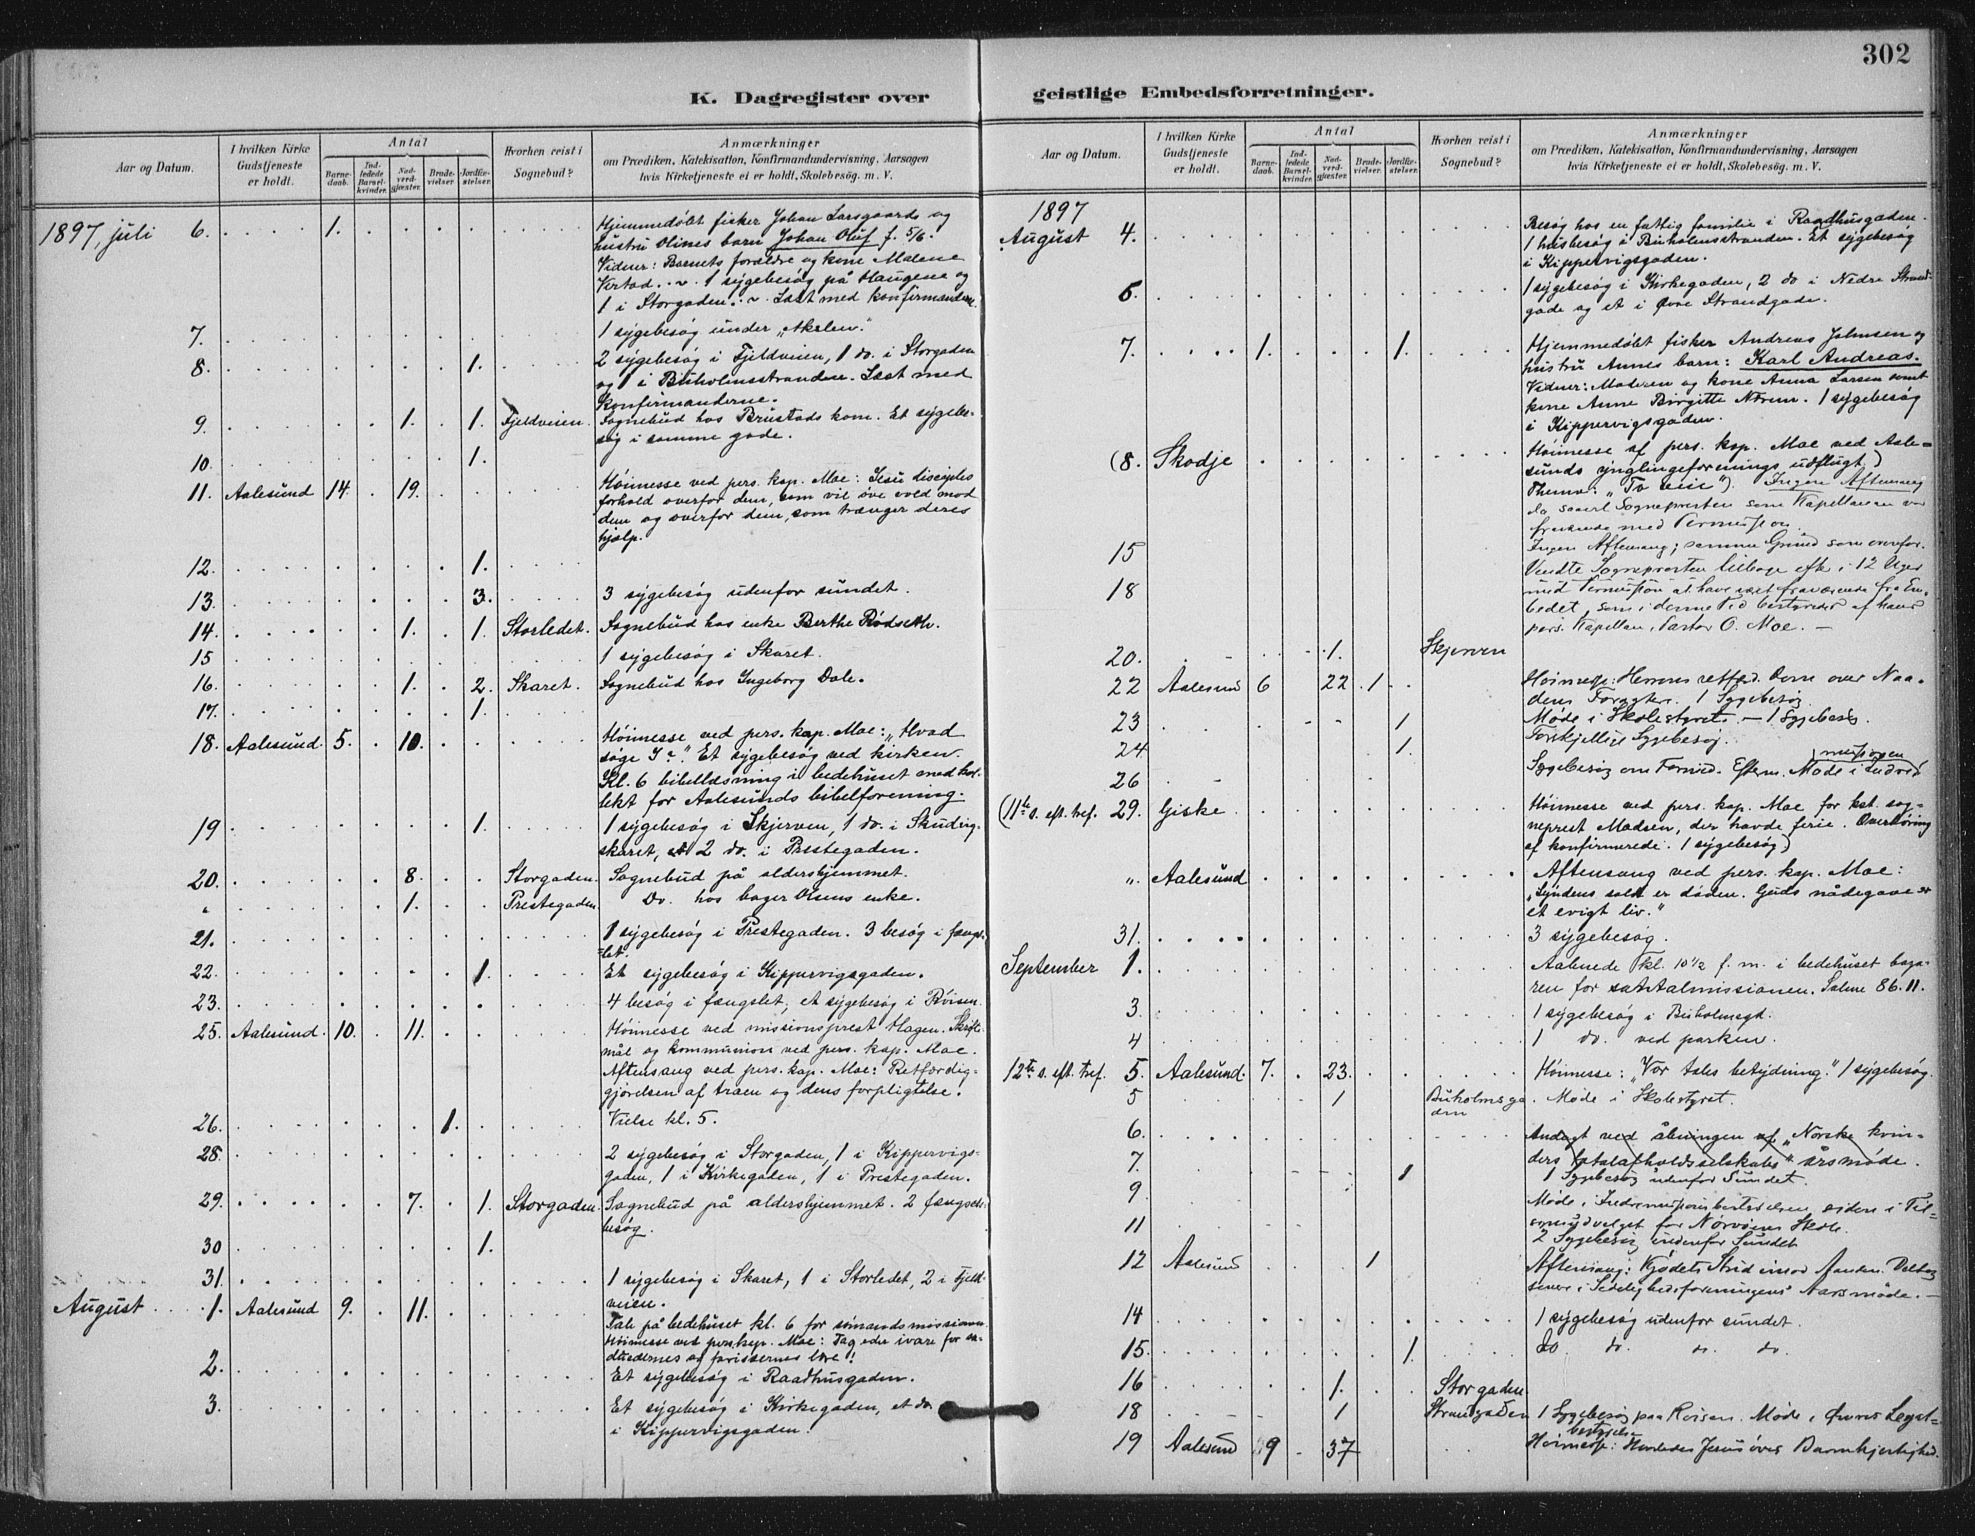 302
K. Dagregister over
geistlige Embedsforretninger.
Aar og Datum.
I hvilken Kirke Gudstjeneste er holdt.
Antal
Barnedaab.
Indledede Barselkvinder.
Nadverdgjæster.
Brudevielser.
Jordfæstelser.
Hvorhen reist i Sognebud?
Anmærkninger
om Prædiken, Katekisation, Konfirmandundervisning, Aarsagen
hvis Kirketjeneste ei er holdt, Skolebesög. m. V.
1897, juli 6. 1. Hjemmedøbt fisker Johan Larsgaards og
hustru Olines barn Johan Oluf f. 5/6.
Vidner: Barnets forældre og kone Malene
1 sygebesøg på Haugene og
1 i Storgaden. Læst med konfirmandene.
7. 1 sygebesøg under "Akslen".
8. 1. 2 sygebesøg i Fjeldveien, 1 do. i Storgaden
og 1 i Buholmsstranden. Læst med
konfirmanderne.
9. 1. 1. Fjeldveien. Sognebud hos Brustads kone. Et sygebe-
søg i samme gade.
10. 1.
11. Aalesund 14. 19. Høimesse ved pers. kap. Moe: Jesu disciples
forhold overfor dem, som vil øve vold mod
dem og overfor dem, som trænger deres
hjælp.
12. 1.
13. 3. 3 sygebesøg udenfor sundet.
14. 1. 1. Storledet. Sognebud hos enke Berthe Rødseth.
15 1 sygebesøg i Skaret.
16. 1. 2. Skaret. Sognebud hos Ingeborg Dale.
17. 1.
18. Aalesund. 5. 10. Høimesse ved pers. kap. Moe: "Hvad
søge I?" Et sygebesøg ved kirken.
Kl. 6 bibellæsning i bedehuset med kol-
lekt for Aalesunds bibelforening.
19 1. 1 sygebesøg i Skjerven, 1 do. i Skudvig-
skaret, 2 do. i Prestegaden.
20. 8. Storgaden. Sognebud på aldershjemmet.
" 1. Prestegaden. Do. hos bager Olsens enke.
21. 1 sygebesøg i Prestegaden. 3 besøg i fængs-
let.
22. 1. Et sygebesøg i Kippervigsgaden.
23. 4 besøg i fængslet, et sygebesøg i Røisen.
25. Aalesund. 10. 11. Høimesse ved missionsprest Hagen. Skrifte-
mål og kommunion ved pers. kap. Moe.
Aftensang ved pers. kap. Moe: Retfærdig-
gjørelsen af troen og dens forpligtelse.
26. 1. Vielse kl. 5.
28. 2 sygebesøg i Storgaden, 1 i Kippervigs-
gaden, 1 i Kirkegaden, 1 i Prestegaden.
29. 7. 1. Storgaden. Sognebud på aldershjemmet. 2 fængsels-
besøg.
30 1.
31. 1 sygebesøg i Skaret, 1 i Storledet, 2 i Fjeld-
veien.
August 1. Aalesund 9. 11. Tale på bedehuset kl. 6 for sømandsmissionen
Høimesse ved pers. kap. Moe: Tag eder ivare for sa-
dukæernes og farisæernes lære!
2. Et sygebesøg i Raadhusgaden.
3. Et sygebesøg i Kirkegaden, et do.
i Kippervigsgaden.
Aar og Datum.
I hvilken Kirke Gudstjeneste er holdt.
Antal
Barnedaab.
Indledede Barselkvinder.
Nadverdgjæster.
Brudevielser.
Jordfæstelser.
Hvorhen reist i Sognebud?
Anmærkninger
om Prædiken, Katekisation, Konfirmandundervisning, Aarsagen
hvis Kirketjeneste ei er holdt, Skolebesög. m. V.
1897
August 4. Besøg hos en fattig familie i Raadhusgaden.
1 husbesøg i Buholmsstranden. Et sygebesøg
i Kippervigsgaden.
5. 1 sygebesøg i Kirkegaden, 2 do i Nedre Strand-
gade og et i Øvre Strandgade.
7. 1. 1. Hjemmedøbt fisker Andreas Johnsen og
hustru Annes barn: Karl Andreas.
Vidner: Moderen og kone Anna Larsen samt
kone Anne Birgitte Nerem. 1 sygebesøg
i Kippervigsgaden.
(8. Skodje Høimesse af pers. kap. Moe ved Aale-
sunds ynglingeforenings udflugt)
Thema: "To veie"). Ingen Aftensang
da saavel Sognepresten som Kapellanen var
fraværende med Permission.
15 Ingen Aftensang; samme Grund som ovenfor.
18 Vendte Sognepresten tilbage efter i 12 Uger
med Permission at have været fraværende fra Em-
bedet, som i denne Tid bestyredes af hans
pers. Kapellan, Pastor O. Moe. —
20. 1. Skjerven
22 Aalesund 6 22 1 Høimesse: Herrens retfærd. Dom over Naa-
dens Foragter. 1 Sygebesøg
23 1 Møde i Skolestyret. — 1 Sygebesøg.
24 1. Forskjellige Sygebesøg.
26 Sygebesøg om Formid. Efterm. Møde i Indre missionen
(11te s. eft. tref. 29. Giske. Høimesse ved pers. kap. Moe for kst. sog-
neprest Madsen, der havde ferie. Overhøring
af konfirmerede. 1 sygebesøg)
" Aalesund Aftensang ved pers. kap. Moe:
"Syndens sold er døden. Guds nådegave er
et evigt liv."
31. 3 sygebesøg.
September 1. Aabnede kl. 10 1/2 f. m. i bedehuset baga-
ren for santalmissionen. Salme 86. 11.
3. 1 sygebesøg i Buholmsgd.
4 1 do. ved parken.
12te s. eft. tref. 5. Aalesund. 7. 23. Høimesse: "Vor tales betydning." 1 sygebesøg.
5 1 Buholmsga
den Møde i Skolestyret.
6. Andagt ved åbningen af "Norske kvin-
ders totalafholdsselskabs" årsmøde.
7. 1 1 Sygebesøg udenfor Sundet.
9 Møde i Indremissionsbestyrelsen, siden i Til-
synsudvalget for Nørvøens Skole.
11 2 Sygebesøg indenfor Sundet
12 Aalesund 1 Aftensang: Kjødets Strid imod Aanden. Deltog
senere i Sedelighedsforeningens Aarsmøde. —
14 1 sygebesøg udenfor sundet.
15. 1. do do. do. do.
16 1. Storgaden.
18 1 Strandgaden 1 Sygebesøg paa Røisen. Møde i Øwres Legat-
bestyrelse
19 Aalesund 9 37 Høimesse: Hvorledes Jesus øver Barmhjertighed.